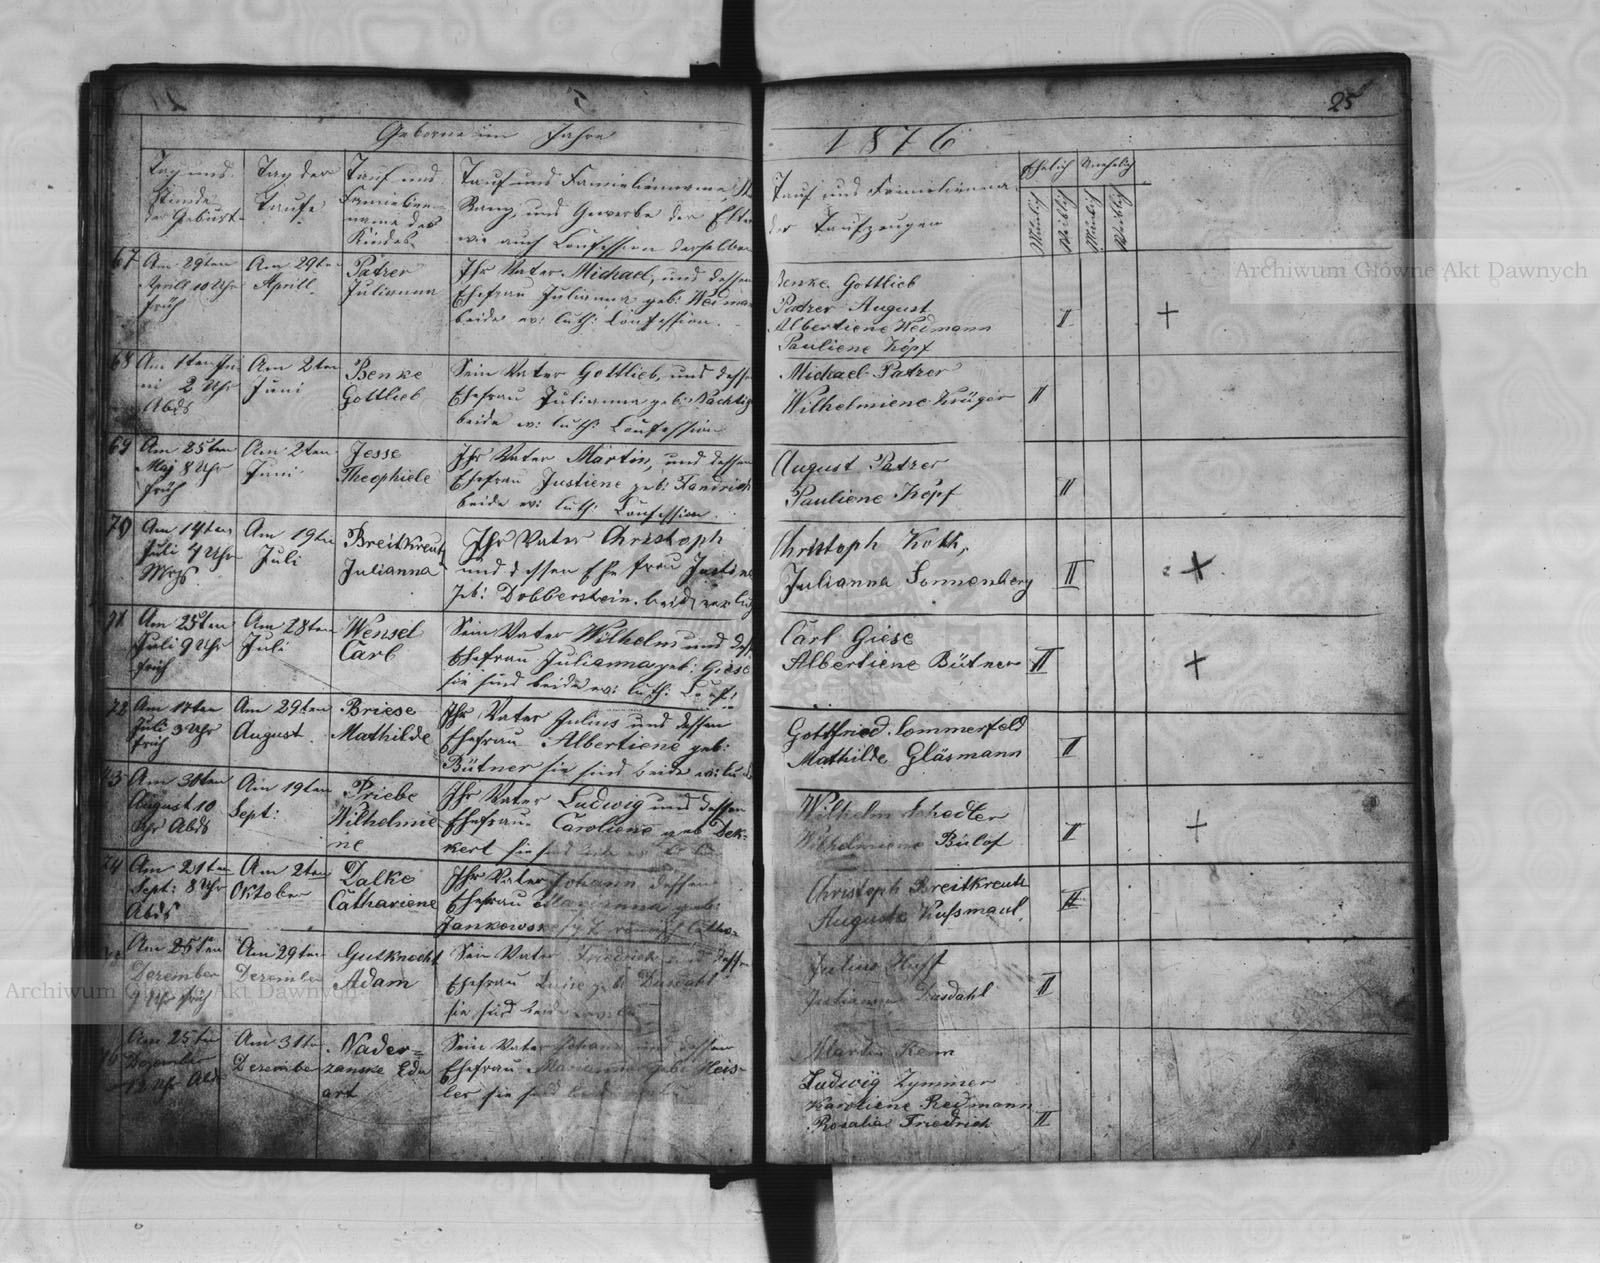 25
Geborne im Jahre
1876
Tag und Stunde der Geburt
Tag der Taufe
Tauf und Familienname des Kindes
Tauf und Familienname,
Rang und Gewerbe der Eltern
wie auch Confession derselben
Tauf und Familienname
der Taufzeugen
Ehelich Unehelich
Mänlich Weiblich Mänlich Weiblich
67
Am 29ten
Aprill 10 Uhr
früh
Am 29ten
Aprill
Patzer
Julianna
Ihr Vater Michael, und dessen
Ehefrau Julianna geb:
beide ev: luth: Confession.
Benke Gottlieb
Patzer August
Albertiene Wedmann
Pauliene Köpf
II
+
68
Am 1ten Juni
2 Uhr
Abds
Am 2ten
Juni
Benke
Gottlieb
Sein Vater Gottlieb, und dessen
Ehefrau Julianna geb:
beide ev: luth: Confession
Michael Patzer
Wilhelmiene Krüger
II
69
Am 25ten
Maj 8 Uhr
früh
Am 2ten
Juni
Jesse
Theophiele
Ihr Vater Martin, und dessen
Ehefrau Justiene geb:
beide ev: luth: Confession.
August Patzer
Pauliene Köpf
II
70
Am 14ten
Juli 4 Uhr
Mrgs.
Am 19ten
Juli
Breitkreutz
Julianna
Ihr Vater Christoph
und dessen Ehefrau Justine
geb: Dobberstein, beide
Christoph Koth,
Julianna Sonnenberg
II
+
71
Am 25ten
Juli 9 Uhr
früh
Am 28ten
Juli
Wensel
Carl
Sein Vater Wilhelm und
Ehefrau Julianna geb: Giese
sie sind beide ev: luth: Conf:
Carl Giese
Albertiene Bütner
II
+
72
Juli 3 Uhr
früh
Am 29ten
August
Briese
Mathilde
Ihr Vater Julius und dessen
Ehefrau Albertiene geb:
Bütner sie sind beide
Gottfried Sommerfeld
Mathilde Gläsmann
II
73
Am 30ten
August 10
Uhr Abds
Am 19ten
Sept:
Priebe
Wilhelmie
ne
Ihr Vater Ludwig und dessen
Ehefrau Caroliene geb Dek-
kert sie sind
Wilhelm Schedler
Wilhelmiene Bülof
II
+
74
Am 21ten
Sept: 8 Uhr
Abds
Am 2ten
Oktober
Dalke
Cathariene
Ihr Vater Johann dessen
Ehefrau Marianna geb:
Jankowske
Christoph Breitkreutz
Auguste Kußmaul.
II
Am 25ten
Dezember
9 Uhr früh
Am 29ten
Dezember
Gutknecht
Adam
Sein Vater Friedrich und dessen
Ehefrau Luise geb: Dusdahl
sie sind beide
Julius Huff
Julianna Dusdahl
II
76
Am 25ten
Dezember
12 Uhr Abds
Am 31ten
Dezember
Nader=
zanske Edu
art
Sein Vater Johann und dessen
Ehefrau Marianna geb: Heis-
ler sie sind beide
Martin Kem
Ludwig Zymmer
Karoliene Redmann
Rosalie Friedrich
II
Archiwum Główne Akt Dawnych
Archiwum Główne Akt Dawnych